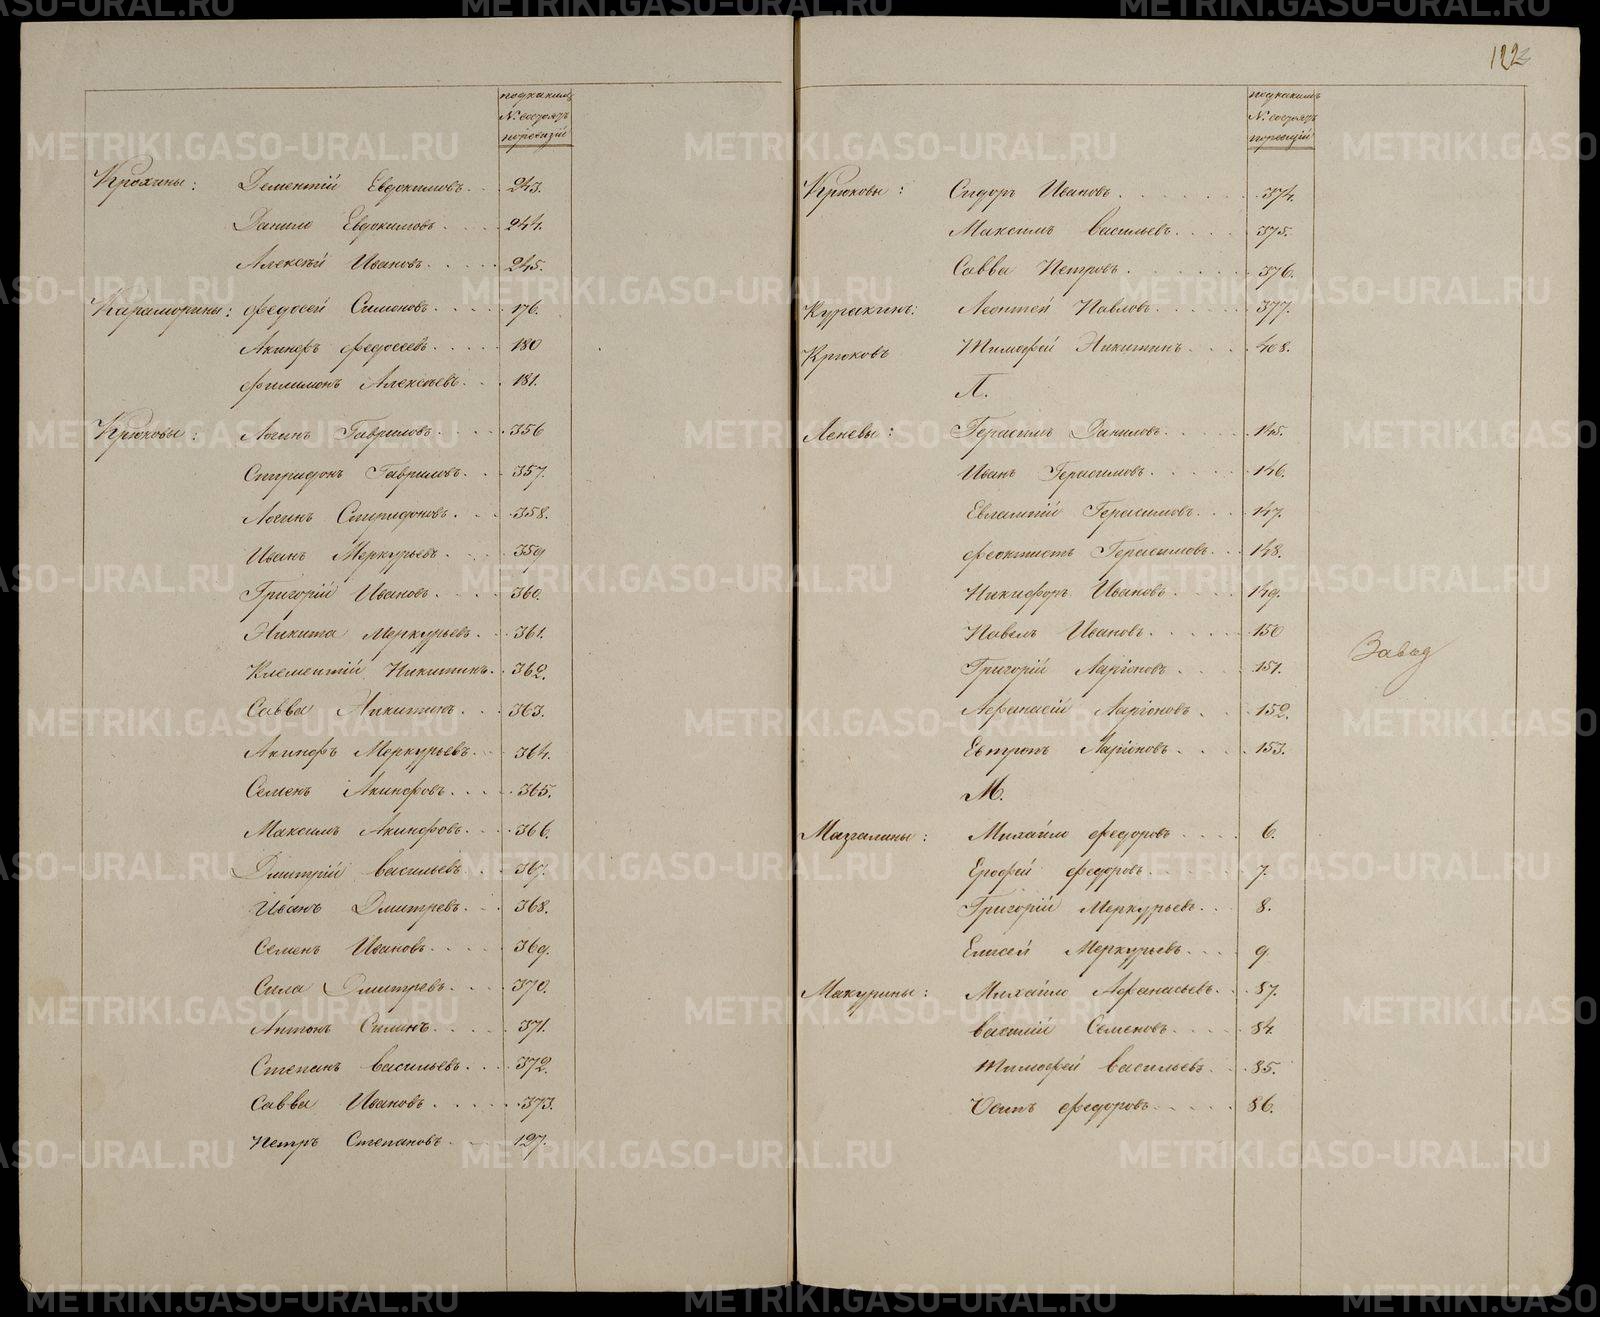 подъ какимъ
№ состоятъ
по ревизіи
Крохины: Дементій Евдокимовъ 243.
Данило Евдокимовъ 244.
Алексѣй Ивановъ 245.
Караморины: Федосей Симоновъ 176.
Акинфъ Федосеевъ 180
Филимонъ Алексѣевъ 181.
Крюковы: Логинъ Гавриловъ 356
Спиридонъ Гавриловъ 357.
Логинъ Спиридоновъ 358.
Иванъ Меркурьевъ 359
Григорій Ивановъ 360.
Никита Меркурьевъ 361.
Клементій Никитинъ 362.
Савва Никитинъ 363.
Акинфъ Меркурьевъ 364.
Семенъ Акинфовъ 365.
Максимъ Акинфовъ 366.
Дмитрій Васильевъ 367.
Иванъ Дмитревъ 368.
Семенъ Ивановъ 369.
Сила Дмитревъ 370.
Антонъ Силинъ 371.
Степанъ Васильевъ 372.
Савва Ивановъ 373.
Петръ Степановъ 127.
подъ какимъ
№ состоятъ
по ревизіи
Крюковы: Сидоръ Ивановъ 374.
Максимъ Васильевъ 375.
Савва Петровъ 376.
Куракинъ: Леонтей Павловъ 377.
Крюковъ Тимофей Никитинъ 408.
Л.
Леневы: Герасимъ Даниловъ 145.
Иванъ Герасимовъ 146.
Евлампій Герасимовъ 147.
Феоктистъ Герасимовъ 148.
Никифоръ Ивановъ 149.
Павелъ Ивановъ 150
Григорій Ларіоновъ 151.
Завод
Афанасій Ларіоновъ 152.
Евтропъ Ларіоновъ 153.
М.
Мазгалины: Михайло Федоровъ 6.
Ерофей Федоровъ 7.
Григорій Меркурьевъ 8.
Елисей Меркурьевъ 9.
Макурины: Михайло Афанасьевъ 87.
Василій Семеновъ 84.
Тимофей Васильевъ 85.
Осипъ Федоровъ 86.
METRIKI.GASO-URAL.RU